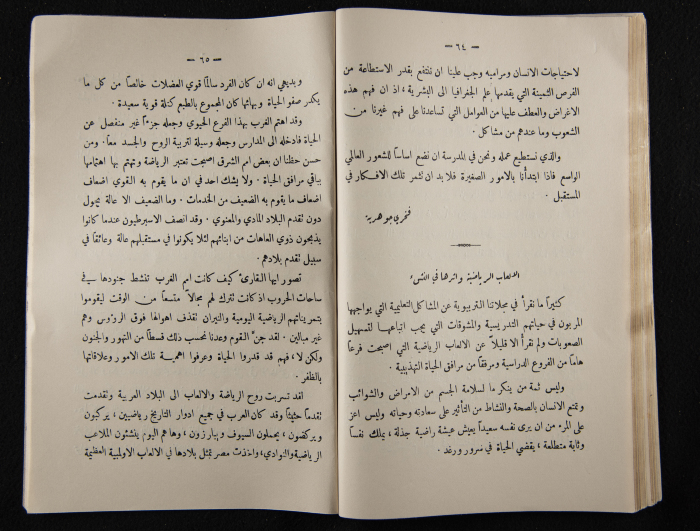 — ٦٤ —
لاحتياجات الانسان ومراميه وجب علينا ان ننتفع بقدر الاستطاعة من
الفرص الثمينة التي يقدمها علم الجغرافيا الى البشرية ، اذ ان فهم هذه
الاغراض والعطف عليها من العوامل التي تساعدنا على فهم غيرنا من
الشعوب وما عندهم من مشاكل .
والذي نستطيع عمله ونحن في المدرسة ان نضع اساساً للشعور العالمي
الواسع فاذا ابتدأنا بالامور الصغيرة فلا بد ان تثمر تلك الافكار في
المستقبل .
فخري جوهرية
الالعاب الرياضية واثرها في النشء
كثيراً ما نقرأ في مجلاتنا التربيوية عن المشاكل التعليمية التي يواجهها
المربون في حياتهم التدريسية والمشوقات التي يجب اتباعها لتسهيل
الصعوبات ولم نقرأ الا قليلاً عن الالعاب الرياضية التي اصبحت فرعاً
هاماً من الفروع الدراسية ومرفقاً من مرافق الحياة التهذيبية .
وليس ثمة من ينكر ما لسلامة الجسم من الامراض والشوائب
وتمتع الانسان بالصحة والنشاط من التأثير على سعادته وحياته وليس اعز
على المرء من ان يرى نفسه سعيداً يعيش عيشة راضية جذلة ، يملك نفساً
وثابة متطلعة ، يقضي الحياة في سرور ورغد .
— ٦٥ —
وبديهي انه ان كان الفرد سالماً قوي العضلات خالصاً من كل ما
يكدر صفو الحياة وبهائها كان المجموع بالطبع كتلة قوية سعيدة .
وقد اهتم الغرب بهذا الفرع الحيوي وجعله جزءاً غير منفصل عن
الحياة فادخله الى المدارس وجعله وسيلة لتربية الروح والجسد معاً . ومن
حسن حظنا ان بعض امم الشرق اصبحت تعتبر الرياضة وتهتم بها اهتمامها
بباقي مرافق الحياة . ولا يشك احد في ان ما يقوم به القوي اضعاف
اضعاف ما يقوم به الضعيف من الخدمات . وما الضعيف الا عالة يحول
دون تقدم البلاد المادي والمعنوي . وقد انصف الاسبرطيون عندما كانوا
يذبحون ذوي العاهات من ابنائهم لئلا يكونوا في مستقبلهم عالة وعائقاً في
سبيل تقدم بلادهم .
تصور ايها القارئ كيف كانت امم الغرب تنشط جنودها في
ساحات الحروب اذ كانت تترك لهم مجالاً متسعاً من الوقت ليقوموا
بتمريناتهم الرياضية اليومية والنيران تقذف اهوالها فوق الرؤوس وهم
غير مبالين . لقد جن القوم وعدنا نحسب ذلك قسطاً من التهور والجنون
ولكن لا ، فهم قد قدروا الحياة وعرفوا اهمية تلك الامور وعلاقاتها
بالظفر .
لقد تسربت روح الرياضة والالعاب الى البلاد العربية وتقدمت
تقدماً حثيثاً وقد كان العرب في جميع ادوار التاريخ رياضيين ، يركبون
ويركضون ، يحملون السيوف ويبارزون ، وها هم اليوم ينشئون الملاعب
الرياضية والنوادي ، واخذت مصر تمثل بلادها في الالعاب الاولمبية العظيمة